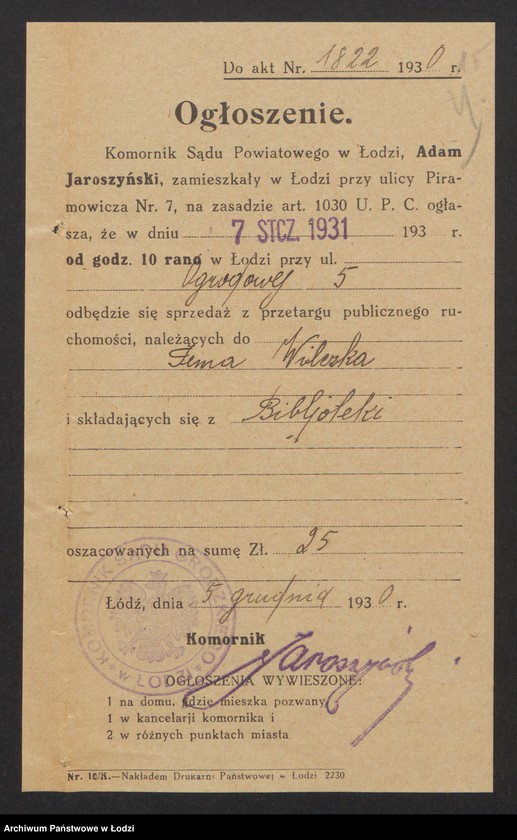 Do akt Nr. 1822 1930 r.
Ogłoszenie.
Komornik Sądu Powiatowego w Łodzi, Adam
Jaroszyński, zamieszkały w Łodzi przy ulicy Pira-
mowicza Nr. 7, na zasadzie art. 1030 U. P. C. ogła-
sza, że w dniu 7 STCZ. 1931 193 r.
od godz. 10 rano w Łodzi przy ul.
Ogrodowej 5
odbędzie się sprzedaż z przetargu publicznego ru-
chomości, należących do
Wilczka
i składających się z Bibljoteki
oszacowanych na sumę Zł. 25
Łódź, dnia 5 grudnia 1930 r.
Komornik
Jaroszyński
KOMORNIK SĄDU GRODZKIEGO
w ŁODZI
OGŁOSZENIA WYWIESZONE:
1 na domu, gdzie mieszka pozwany
1 w kancelarji komornika i
2 w różnych punktach miasta
Nr. 10/K.—Nakładem Drukarni Państwowej w Łodzi 2230
Archiwum Państwowe w Łodzi